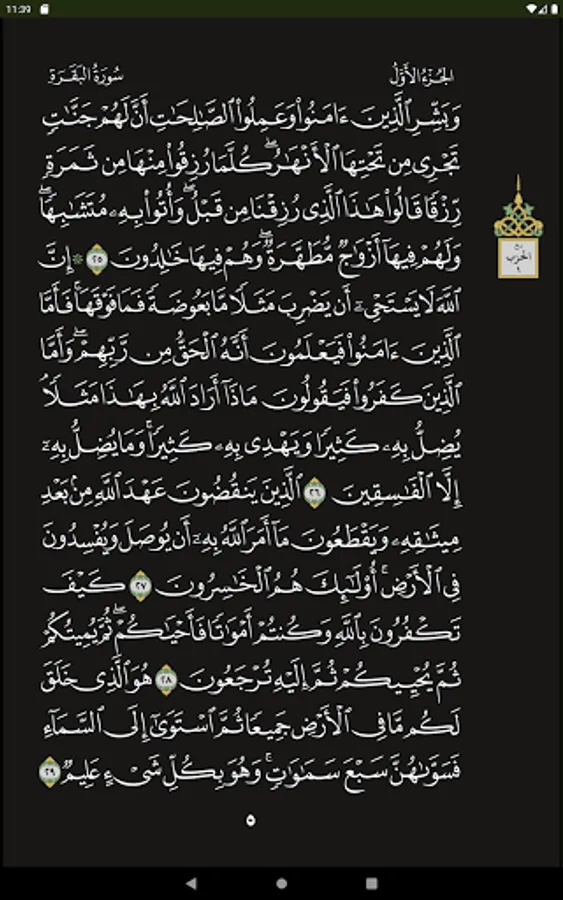 11:39
سُورَةُ البَقَرَةِ الجُزْءُ الأَوَّلُ
وَبَشِّرِ الَّذِينَ ءَامَنُوا۟ وَعَمِلُوا۟ الصَّـٰلِحَـٰتِ أَنَّ لَهُمْ جَنَّـٰتٍ
تَجْرِى مِن تَحْتِهَا الْأَنْهَـٰرُ ۖ كُلَّمَا رُزِقُوا۟ مِنْهَا مِن ثَمَرَةٍ
رِّزْقًا قَالُوا۟ هَـٰذَا الَّذِى رُزِقْنَا مِن قَبْلُ ۖ وَأُتُوا۟ بِهِۦ مُتَشَـٰبِهًا ۖ
وَلَهُمْ فِيهَآ أَزْوَٰجٌ مُّطَهَّرَةٌ ۖ وَهُمْ فِيهَا خَـٰلِدُونَ ٢٥ ۞ إِنَّ
اللَّهَ لَا يَسْتَحْىِۦٓ أَن يَضْرِبَ مَثَلًا مَّا بَعُوضَةً فَمَا فَوْقَهَا ۚ فَأَمَّا
الَّذِينَ ءَامَنُوا۟ فَيَعْلَمُونَ أَنَّهُ الْحَقُّ مِن رَّبِّهِمْ ۖ وَأَمَّا
الَّذِينَ كَفَرُوا۟ فَيَقُولُونَ مَاذَآ أَرَادَ اللَّهُ بِهَـٰذَا مَثَلًا ۘ
يُضِلُّ بِهِۦ كَثِيرًا وَيَهْدِى بِهِۦ كَثِيرًا ۚ وَمَا يُضِلُّ بِهِۦٓ
إِلَّا الْفَـٰسِقِينَ ٢٦ الَّذِينَ يَنقُضُونَ عَهْدَ اللَّهِ مِنۢ بَعْدِ
مِيثَـٰقِهِۦ وَيَقْطَعُونَ مَآ أَمَرَ اللَّهُ بِهِۦٓ أَن يُوصَلَ وَيُفْسِدُونَ
فِى الْأَرْضِ ۚ أُو۟لَـٰٓئِكَ هُمُ الْخَـٰسِرُونَ ٢٧ كَيْفَ
تَكْفُرُونَ بِاللَّهِ وَكُنتُمْ أَمْوَٰتًا فَأَحْيَـٰكُمْ ۖ ثُمَّ يُمِيتُكُمْ
ثُمَّ يُحْيِيكُمْ ثُمَّ إِلَيْهِ تُرْجَعُونَ ٢٨ هُوَ الَّذِى خَلَقَ
لَكُم مَّا فِى الْأَرْضِ جَمِيعًا ثُمَّ اسْتَوَىٰٓ إِلَى السَّمَآءِ
فَسَوَّىٰهُنَّ سَبْعَ سَمَـٰوَٰتٍ ۚ وَهُوَ بِكُلِّ شَىْءٍ عَلِيمٌ ٢٩
٥
الحزب